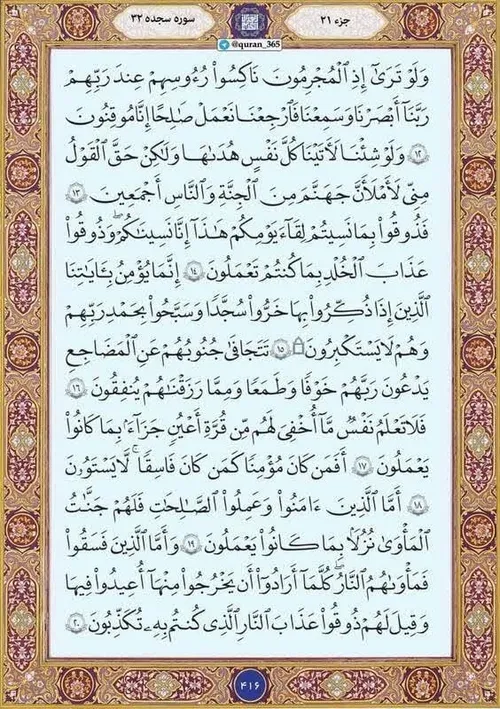 سوره سجده ۳۲
@quran_365
جزء ۲۱
وَلَوْ تَرَىٰٓ إِذِ ٱلْمُجْرِمُونَ نَاكِسُوا۟ رُءُوسِهِمْ عِندَ رَبِّهِمْ
رَبَّنَآ أَبْصَرْنَا وَسَمِعْنَا فَٱرْجِعْنَا نَعْمَلْ صَٰلِحًا إِنَّا مُوقِنُونَ
۱۲ وَلَوْ شِئْنَا لَءَاتَيْنَا كُلَّ نَفْسٍ هُدَىٰهَا وَلَٰكِنْ حَقَّ ٱلْقَوْلُ
مِنِّى لَأَمْلَأَنَّ جَهَنَّمَ مِنَ ٱلْجِنَّةِ وَٱلنَّاسِ أَجْمَعِينَ ۱۳
فَذُوقُوا۟ بِمَا نَسِيتُمْ لِقَآءَ يَوْمِكُمْ هَٰذَآ إِنَّا نَسِينَٰكُمْ ۖ وَذُوقُوا۟
عَذَابَ ٱلْخُلْدِ بِمَا كُنتُمْ تَعْمَلُونَ ۱۴ إِنَّمَا يُؤْمِنُ بِـَٔايَٰتِنَا
ٱلَّذِينَ إِذَا ذُكِّرُوا۟ بِهَا خَرُّوا۟ سُجَّدًا وَسَبَّحُوا۟ بِحَمْدِ رَبِّهِمْ
وَهُمْ لَا يَسْتَكْبِرُونَ ۩ ۱۵ تَتَجَافَىٰ جُنُوبُهُمْ عَنِ ٱلْمَضَاجِعِ
يَدْعُونَ رَبَّهُمْ خَوْفًا وَطَمَعًا وَمِمَّا رَزَقْنَٰهُمْ يُنفِقُونَ ۱۶
فَلَا تَعْلَمُ نَفْسٌ مَّآ أُخْفِىَ لَهُم مِّن قُرَّةِ أَعْيُنٍ جَزَآءًۢ بِمَا كَانُوا۟
يَعْمَلُونَ ۱۷ أَفَمَن كَانَ مُؤْمِنًا كَمَن كَانَ فَاسِقًا ۚ لَّا يَسْتَوُۥنَ
۱۸ أَمَّا ٱلَّذِينَ ءَامَنُوا۟ وَعَمِلُوا۟ ٱلصَّٰلِحَٰتِ فَلَهُمْ جَنَّٰتُ
ٱلْمَأْوَىٰ نُزُلًۢا بِمَا كَانُوا۟ يَعْمَلُونَ ۱۹ وَأَمَّا ٱلَّذِينَ فَسَقُوا۟
فَمَأْوَىٰهُمُ ٱلنَّارُ ۖ كُلَّمَآ أَرَادُوٓا۟ أَن يَخْرُجُوا۟ مِنْهَآ أُعِيدُوا۟ فِيهَا
وَقِيلَ لَهُمْ ذُوقُوا۟ عَذَابَ ٱلنَّارِ ٱلَّذِى كُنتُم بِهِۦ تُكَذِّبُونَ ۲۰
۴۱۶